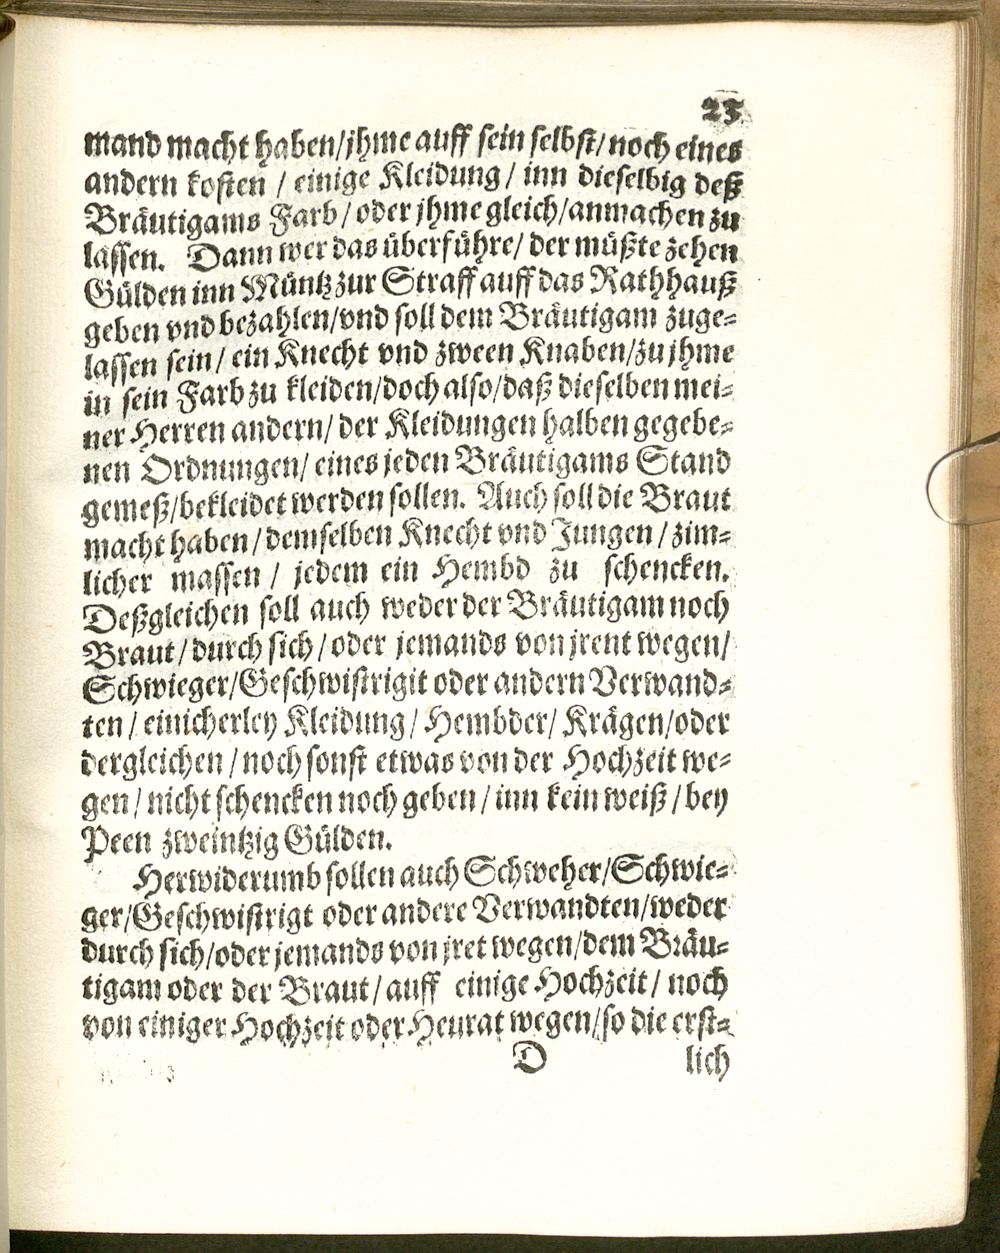 25
mand macht haben/jhme auff sein selbst/ noch eines
andern kosten / einige Kleidung / inn dieselbig deß
Bräutigams Farb / oder jhme gleich/anmachen zu
lassen. Dann wer das überführe/ der müßte zehen
Gülden inn Müntz zur Straff auff das Rathhauß
geben vnd bezahlen/vnd soll dem Bräutigam zuge-
lassen sein / ein Knecht vnd zween Knaben/zu jhme
in sein Farb zu kleiden/doch also/daß dieselben mei-
ner Herren andern/ der Kleidungen halben gegebe-
nen Ordnungen/ eines jeden Bräutigams Stand
gemeß/bekleidet werden sollen. Auch soll die Braut
macht haben / demselben Knecht vnd Jungen / zim-
licher massen / jedem ein Hembd zu schencken.
Deßgleichen soll auch weder der Bräutigam noch
Braut / durch sich / oder jemands von jrent wegen/
Schwieger/Geschwistrigit oder andern Verwand-
ten / einicherley Kleidung / Hembder/ Krägen/oder
dergleichen / noch sonst etwas von der Hochzeit we-
gen / nicht schencken noch geben / inn kein weiß / bey
Peen zweintzig Gülden.
Herwiderumb sollen auch Schweher/Schwie-
ger/Geschwistrigt oder andere Verwandten/weder
durch sich/oder jemands von jret wegen/dem Bräu-
tigam oder der Braut / auff einige Hochzeit / noch
von einiger Hochzeit oder Heurat wegen/so die erst-
D lich